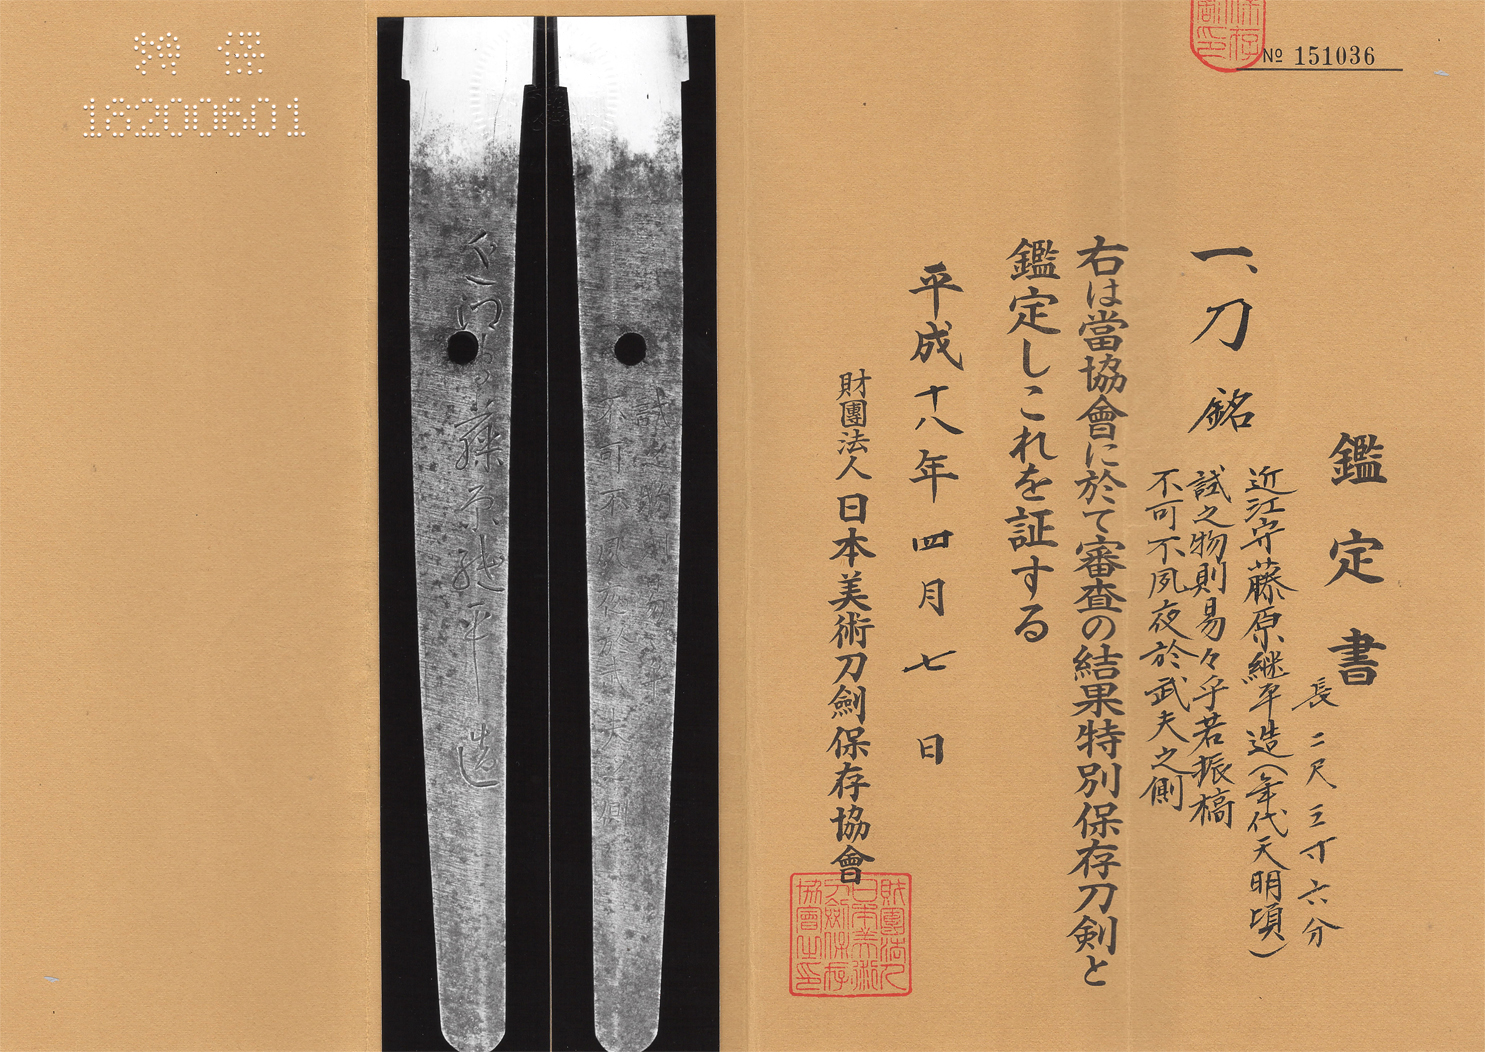 № 151036
鑑定書
長 二尺三寸六分
一、刀 銘 近江守藤原継平造(年代天明頃)
試之物則易々乎若振槁
不可不夙夜於武夫之側
右は當協會に於て審査の結果特別保存刀剣と
鑑定しこれを証する
平成十八年四月七日
財團法人 日本美術刀劍保存協會
財團法人
日本美術
刀劍保存
協會之印
近江守藤原継平造
試之物則易
不可不夙夜於武夫之側
特 保
18200601